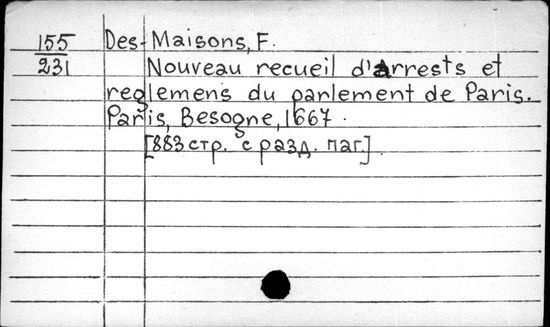 155 Des-Maisons, F.
231 Nouveau recueil d'arrests et
reglemens du parlement de Paris.
Paris, Besogne, 1667.
[883 стр. с разд. паг.]